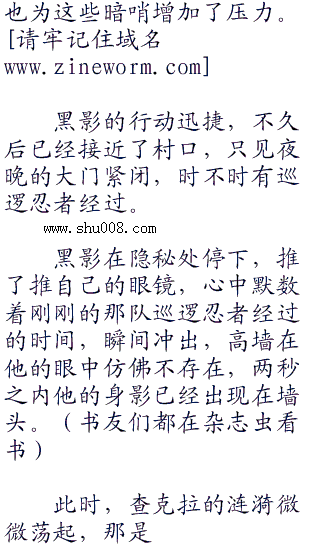 也为这些暗哨增加了压力。
[请牢记住域名
www.zineworm.com]
黑影的行动迅捷，不久
后已经接近了村口，只见夜
晚的大门紧闭，时不时有巡
逻忍者经过。
www.shu008.com
黑影在隐秘处停下，推
了推自己的眼镜，心中默数
着刚刚的那队巡逻忍者经过
的时间，瞬间冲出，高墙在
他的眼中仿佛不存在，两秒
之内他的身影已经出现在墙
头。（书友们都在杂志虫看
书）
此时，查克拉的涟漪微
微荡起，那是